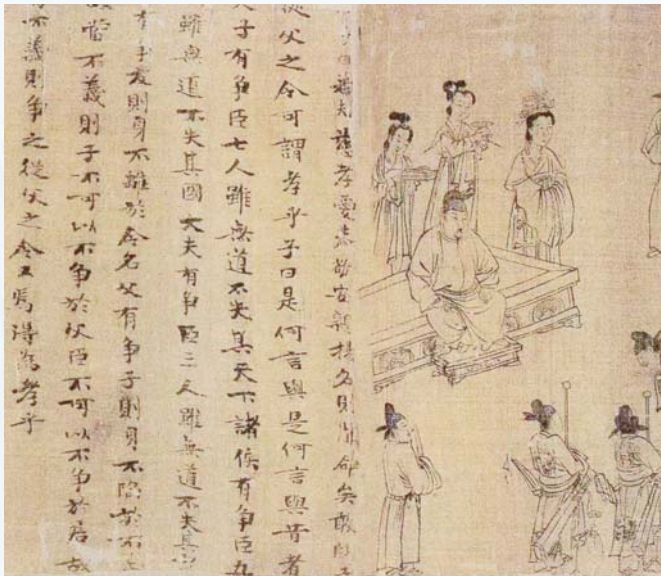 曰若夫慈孝愛恭敬安親揚名則聞命矣敢問子
從父之令可謂孝乎子曰是何言與是何言與昔者
天子有争臣七人雖無道不失其天下諸侯有争臣五
雖無道不失其國大夫有争臣三人雖無道不失其家
有争友則身不離於令名父有争子則身不陷於不
當不義則子不可以不争於父臣不可以不争於君故
當不義則争之從父之令又焉得為孝乎